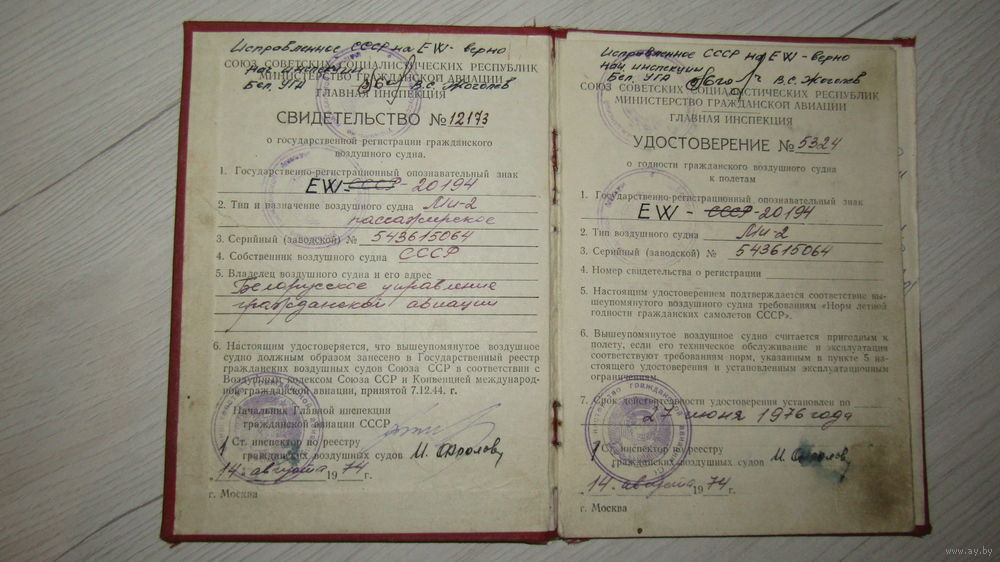 Исправленное СССР на EW - верно
нач. инспекции
Бел. УГА В.С. Жоголев
СОЮЗ СОВЕТСКИХ СОЦИАЛИСТИЧЕСКИХ РЕСПУБЛИК
МИНИСТЕРСТВО ГРАЖДАНСКОЙ АВИАЦИИ
ГЛАВНАЯ ИНСПЕКЦИЯ
СВИДЕТЕЛЬСТВО № 12173
о государственной регистрации гражданского
воздушного судна.
1. Государственно-регистрационный опознавательный знак
EW-СССР-20194
2. Тип и назначение воздушного судна Ми-2
пассажирское
3. Серийный (заводской) № 543615064
4. Собственник воздушного судна СССР
5. Владелец воздушного судна и его адрес
Белорусское управление
гражданской авиации
6. Настоящим удостоверяется, что вышеупомянутое воздушное
судно должным образом занесено в Государственный реестр
гражданских воздушных судов Союза ССР в соответствии с
Воздушным кодексом Союза ССР и Конвенцией международ-
ной гражданской авиации, принятой 7.12.44, г.
Начальник Главной инспекции
гражданской авиации СССР
Ст. инспектор по реестру
гражданских воздушных судов И. Фролов
„14„ августа 1974г.
г. Москва
Исправленное СССР на EW - верно
нач. инспекции
Бел. УГА В.С. Жоголев
СОЮЗ СОВЕТСКИХ СОЦИАЛИСТИЧЕСКИХ РЕСПУБЛИК
МИНИСТЕРСТВО ГРАЖДАНСКОЙ АВИАЦИИ
ГЛАВНАЯ ИНСПЕКЦИЯ
УДОСТОВЕРЕНИЕ № 5324
о годности гражданского воздушного судна
к полетам
1. Государственно-регистрационный опознавательный знак
EW - СССР-20194
2. Тип воздушного судна Ми-2
3. Серийный (заводской) № 543615064
4. Номер свидетельства о регистрации
5. Настоящим удостоверением подтверждается соответствие вы-
шеупомянутого воздушного судна требованиям «Норм летной
годности гражданских самолетов СССР».
6. Вышеупомянутое воздушное судно считается пригодным к
полету, если его техническое обслуживание и эксплуатация
соответствуют требованиям норм, указанным в пункте 5 на-
стоящего удостоверения и установленным эксплуатационным
ограничениям.
7. Срок действительности удостоверения установлен по
27 июня 1976 года
Ст. инспектор по реестру
гражданских воздушных судов И. Фролов
„14„ августа 1974г.
г. Москва
www.ay.by